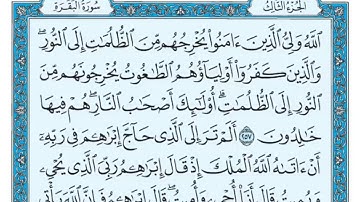 الجزء الثالث
سورة البقرة
ٱللَّهُ وَلِىُّ ٱلَّذِينَ ءَامَنُوا۟ يُخْرِجُهُم مِّنَ ٱلظُّلُمَٰتِ إِلَى ٱلنُّورِ ۖ
وَٱلَّذِينَ كَفَرُوٓا۟ أَوْلِيَآؤُهُمُ ٱلطَّٰغُوتُ يُخْرِجُونَهُم مِّنَ
ٱلنُّورِ إِلَى ٱلظُّلُمَٰتِ ۗ أُو۟لَٰٓئِكَ أَصْحَٰبُ ٱلنَّارِ ۖ هُمْ فِيهَا
خَٰلِدُونَ ۝٢٥٧ أَلَمْ تَرَ إِلَى ٱلَّذِى حَآجَّ إِبْرَٰهِـۧمَ فِى رَبِّهِۦٓ
أَنْ ءَاتَىٰهُ ٱللَّهُ ٱلْمُلْكَ إِذْ قَالَ إِبْرَٰهِـۧمُ رَبِّىَ ٱلَّذِى يُحْىِۦ
وَيُمِيتُ قَالَ أَنَا۠ أُحْىِۦ وَأُمِيتُ ۖ قَالَ إِبْرَٰهِـۧمُ فَإِنَّ ٱللَّهَ يَأْتِى